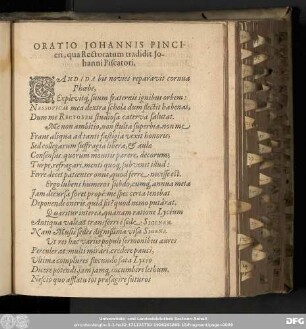 ORATIO JOHANNIS PINCI
er, qua Rectoratum tradidit Jo-
hanni Piscatori.
CANDIDA bis novies reparavit cornua
Phœbe,
Explevitq, suum fraternis ignibus orbem:
NASSOVICÆ mea dextra scholæ dum flectit habenas,
Dum me RECTOREM studiosa caterva salutat.
Me non ambitio, non stulta superbia, non me
Fraus aliqua ad tanti fastigia vexit honoris:
Sed collegarum suffragia libera, & aula
Consensus: quorum monitis parere, decorum;
Turpe, refragari. moniti quoq, subveniet illud:
Ferre decet patienter onus, quod ferre, necesse est.
Ergo lubens humeros subdo, cumq, annua meta
Jam dicursa foret propè me spes certa tenebat
Deponendi oneris. quid fit? quod minus putârat.
Quæritur interea, quanam ratione Lycéum
Antiqua valeat transferri è sede. SIGENAM.
Nam Musis sedes dignissima visa SIGENA.
Ut res hæc variis populi sermonibus aures
Perculit: et multi mirari, credere pauci,
Ultima compleri facundo fata Lyceo
Dicere potuêti, jam jamq, incumbere lethum.
Nescio quo afflatu tot præsagire futuros